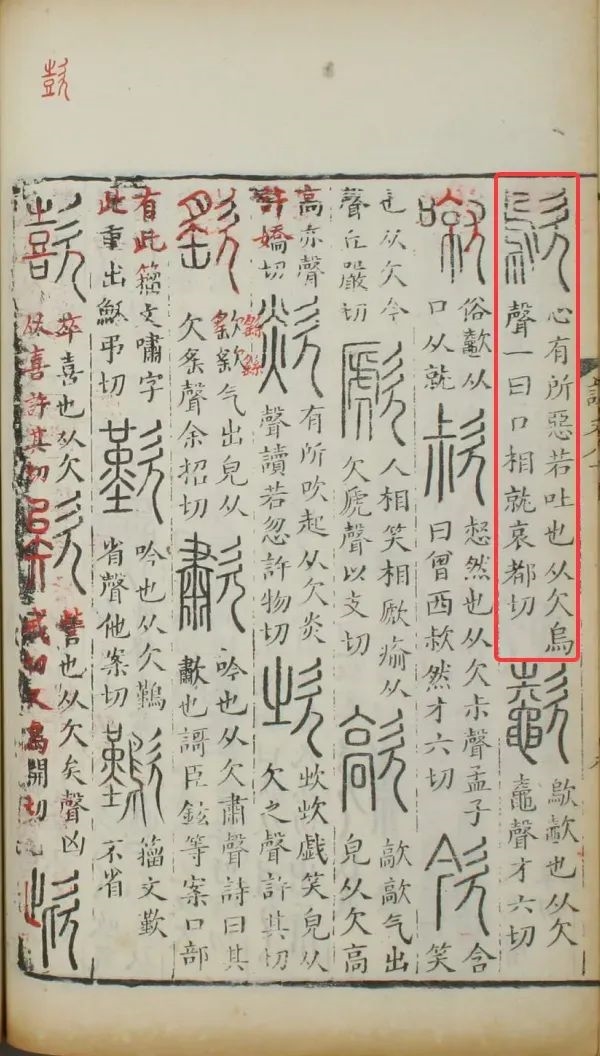 歖
歍
心有所惡若吐也从欠烏
聲一曰口相就哀都切
歍歜也从欠
鼀聲才六切
噈
俗歜从
口从就
㰗
怒然也从欠尗聲孟子
曰曾西㰗然才六切
㰦
含笑
也从欠今
聲丘嚴切
歋
人相笑相歋瘉从
欠虒聲以支切
歊
歊歊气出
皃从欠高
高亦聲
許嬌切
欻
有所吹起从欠炎
聲讀若忽許物切
㰞
㰞㰞戲笑皃从
欠之聲許其切
气出皃从
欠䍃聲余招切
歗
吟也从欠肅聲詩曰其
歗也謌臣鉉等案口部
有此籀文嘯字
此重出穌弔切
歎
吟也从欠鷬
省聲他案切
籀文歎
不省
歖
卒喜也从欠
从喜許其切
欸
訾也从欠矣聲凶
戒切又烏開切